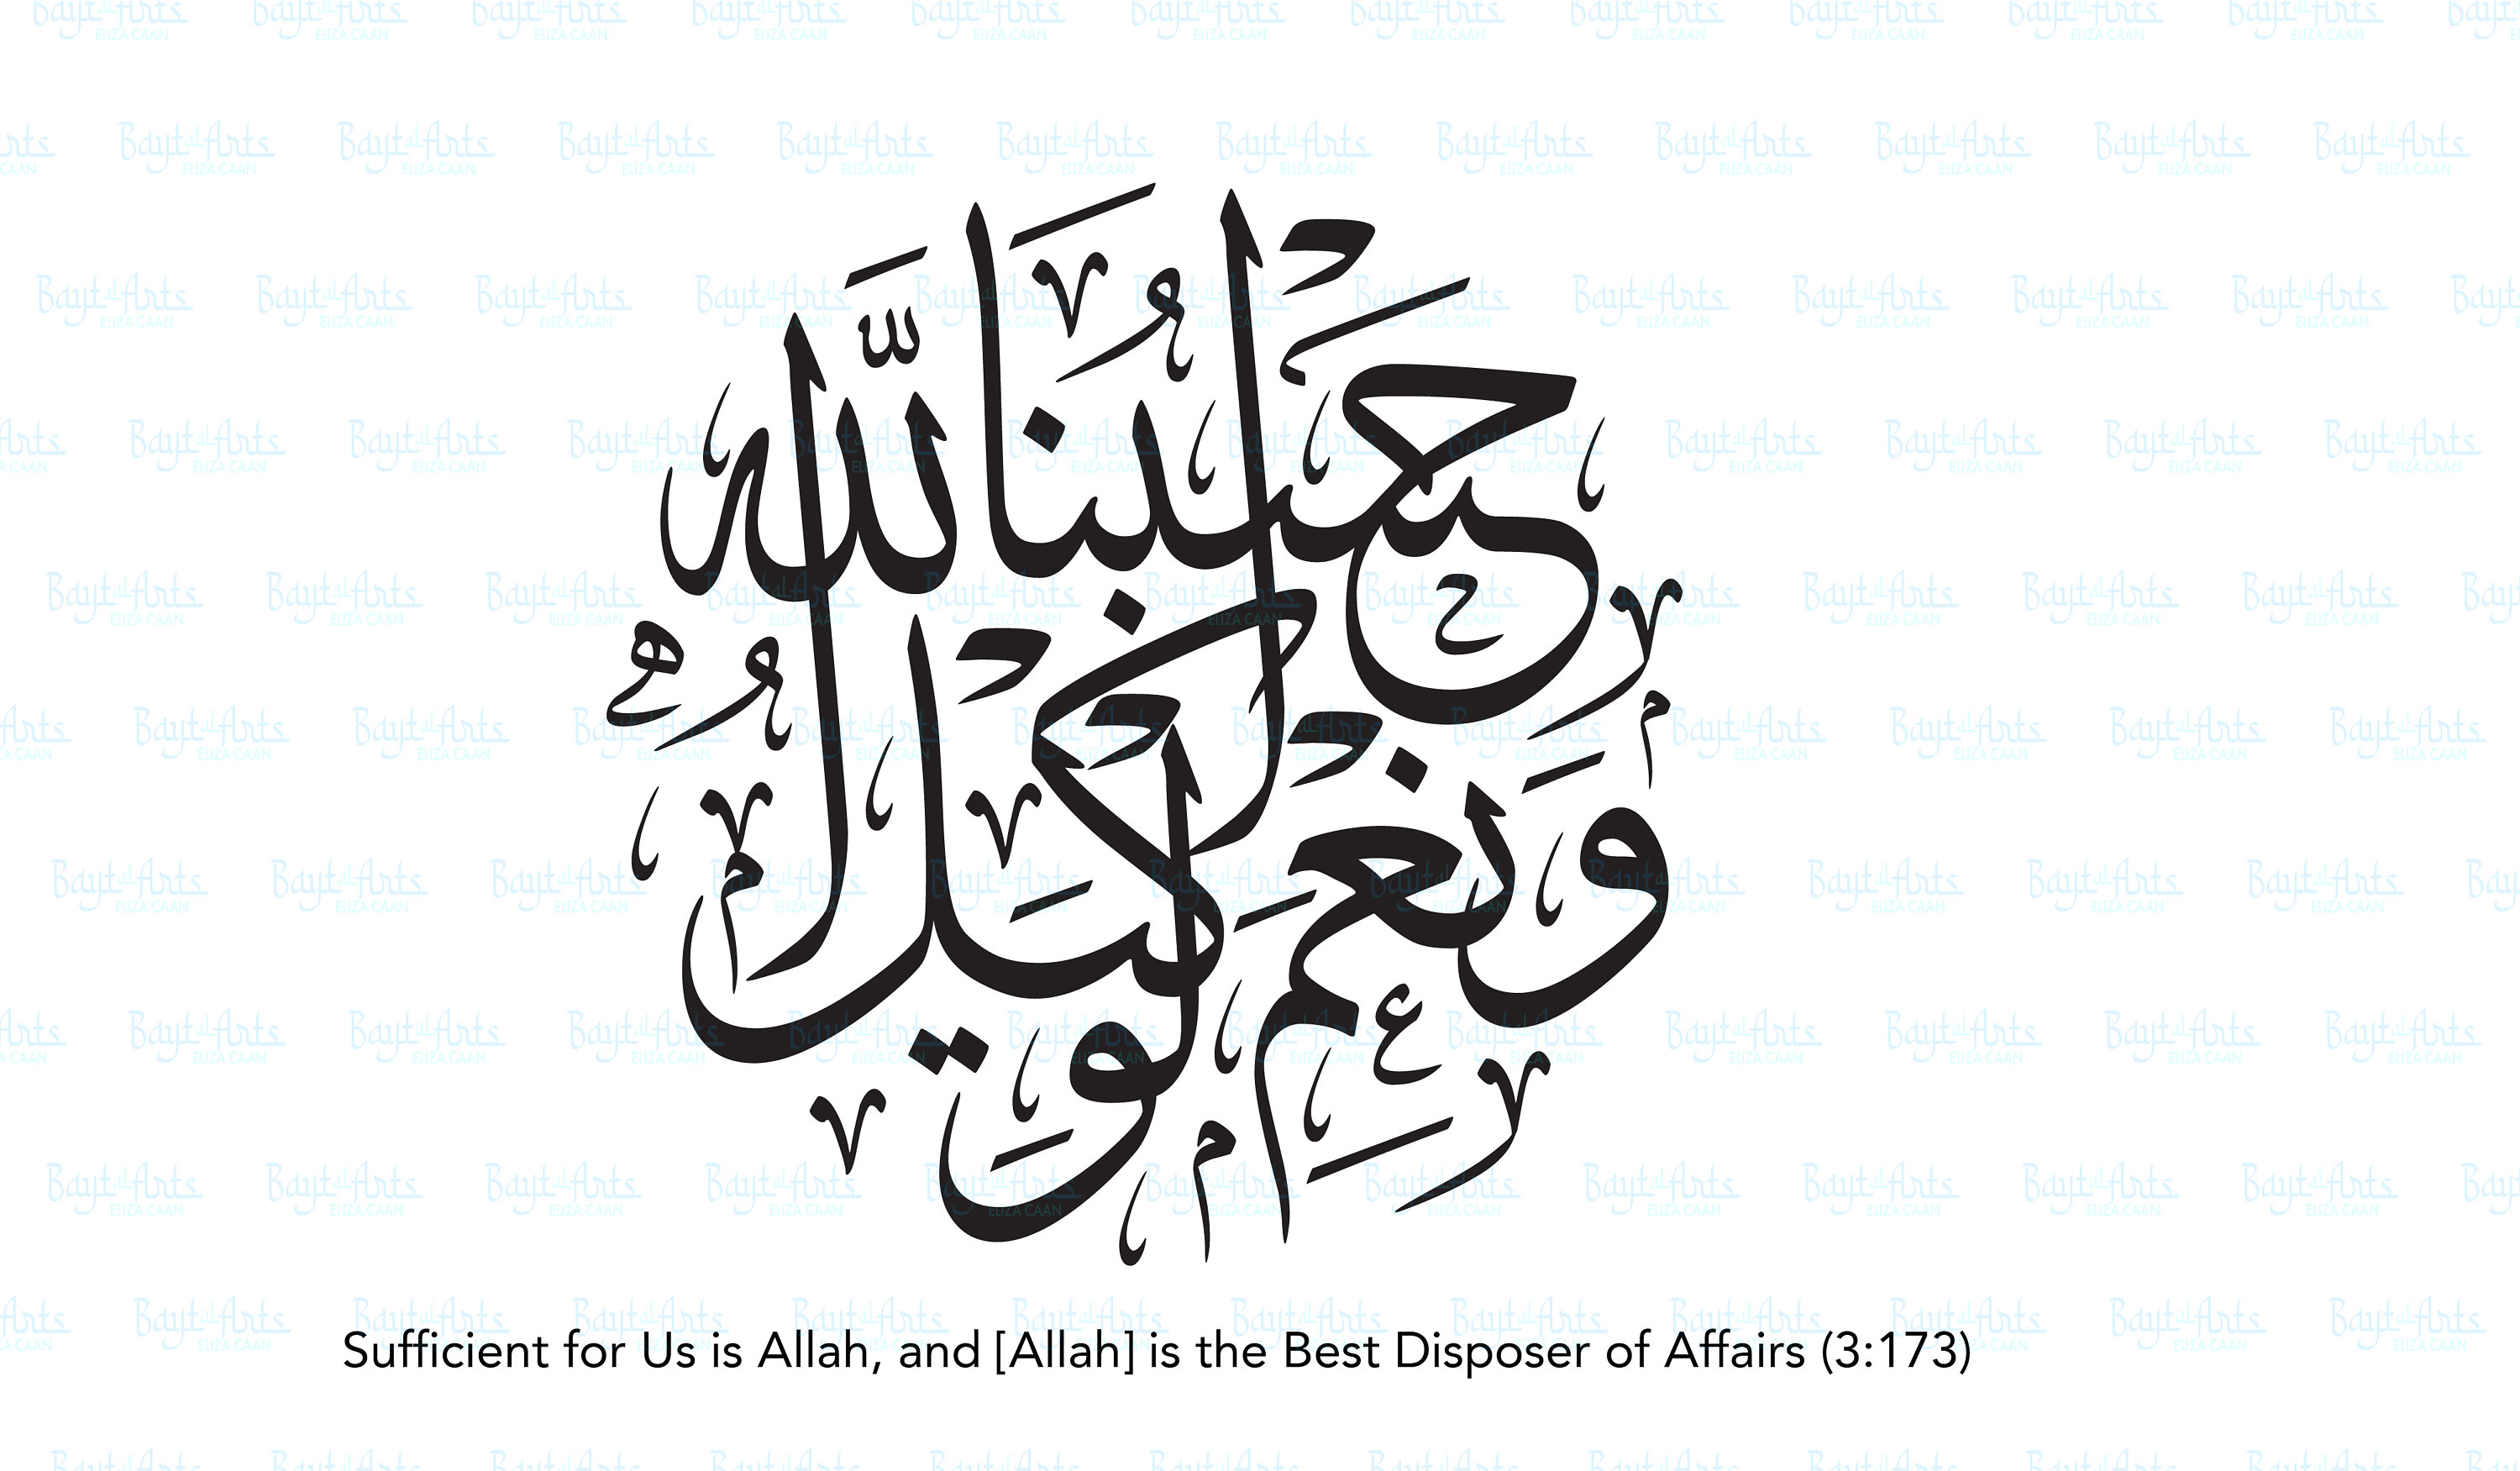 حسبنا الله
ونعم الوكيل
Sufficient for Us is Allah, and [Allah] is the Best Disposer of Affairs (3:173)
Bayt al Arts
ELIZA CAAN